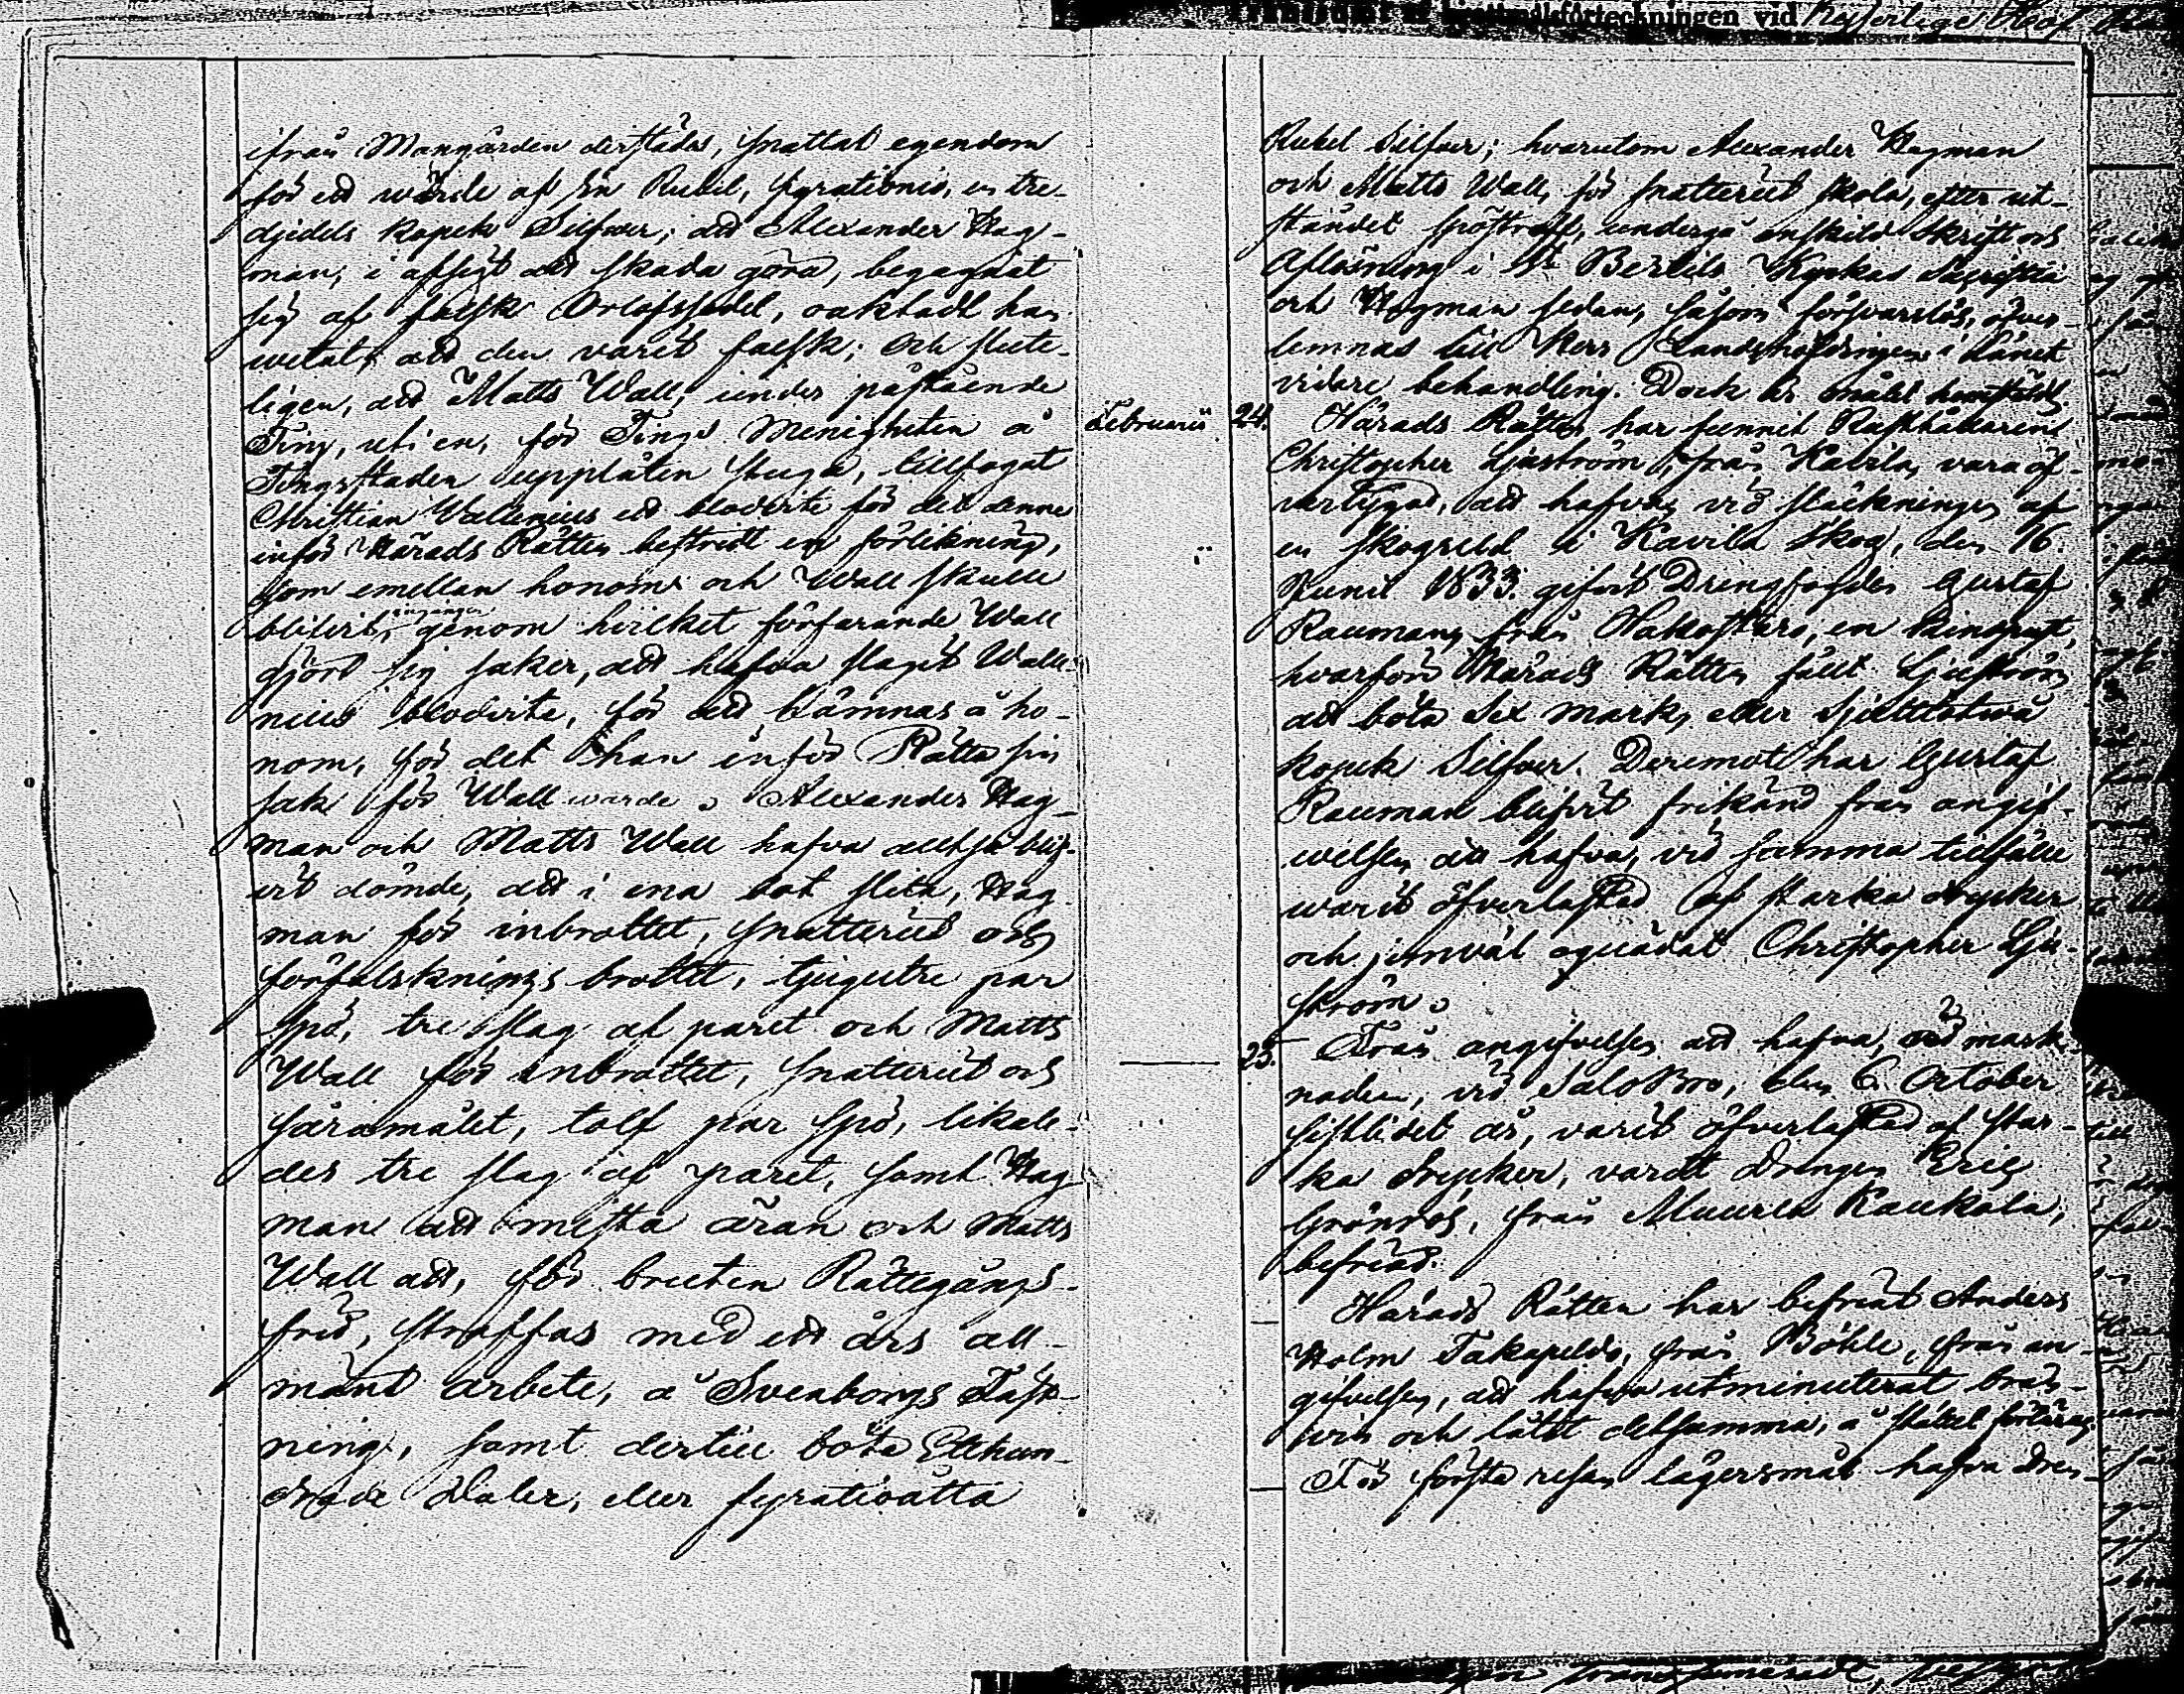 ifrån Mangården derstädes, snattat egendom
för ett wärde af En Rubel, fyrationio, en tre-
djedels kopek Silfwer; att Alexander Hag-
man, i afsigt att skada göra, begagnat
sig af falsk Orlofssedel, oaktadt han
wetat, att den varit falsk; och slute-
ligen, att Matts Wall, under påstående
Ting, uti en, för Tings Menigheten å
Tingsstaden upplåten stuga, tillfogat
Christian Wallenius ett blodvite för det denne
inför Härads Rätten bestridt en förlikning,
som emellan honom och Wall skulle
blifvit ingången, genom hvilket förfarande Wall
gjort sig saker, att hafva slagit Walle-
nius blodvite, för att hämnas å ho-
nom, för det han inför Rätta sin
sak för Wall warde. Alexander Hag-
man och Matts Wall hafva altså blif-
vit dömde, att i ena bot slita, Hag-
man för inbrottet, snatteriet och
förfalsknings brottet, tjugutre par
spö, tre slag af paret och Matts
Wall för inbrottet, snatteriet och
såramålet, tolf par spö, likale-
des tre slag af paret, samt Hag-
man att mista äran och Matts
Wall att, för bruten Rättegångs-
frid, straffas med ett års all-
mänt arbete, å Sveaborgs Fäst-
ning, samt dertill böta Etthun-
drade Daler, eller fyratioåtta
Rubel Silfver; hvarutom Alexander Hagman
och Matts Wall, för snatteriet skola, efter ut-
ståndet spöstraff, undergå enskild skrift och
Aflösning i St Bertils Kyrkas Sacristia
och Hagman sedan, såsom försvarslös, öfver-
lemnas till Herr Landshöfdingen i Länet
vidare behandling. Dock är målet hemstäldt.
Februarii 24. Härads Rätten har funnit Rusthållaren
Christopher Ljuström, från Kavila, vara öf-
vertygad, att hafva, vid släckningen af
en skogseld i Kavila skog, den 16.
Junii 1833. gifvit Drängfogden Gustaf
Rauman, från en kindpust,
hvarför Härads Rätten fällt Ljuström
att böta Sex mark, eller Sjuttiotwå
kopek Silfver. Deremot har Gustaf
Rauman blifvit frikänd från angif-
welsen att hafva, vid samma tillfälle
warit öfverlastad af starka drycker
och jemväl oqvädat Christopher Lju-
ström.
25. Från angifvelsen att hafva, vid mark-
naden, vid Salo Bro, den 6. October
sistlidet år, varit öfverlastad af star-
ka drycker, vardt drängen Eric
Grönros, från Muurla Kaukola,
befriad.
Härads Rätten har befriat Anders
Holm Takapeldo, från Böhle, från an-
gifvelsen, att hafva utminuterat brän-
vin och låtit detsamma, å stället förtäras.
För första resan lägersmål hafva dren-